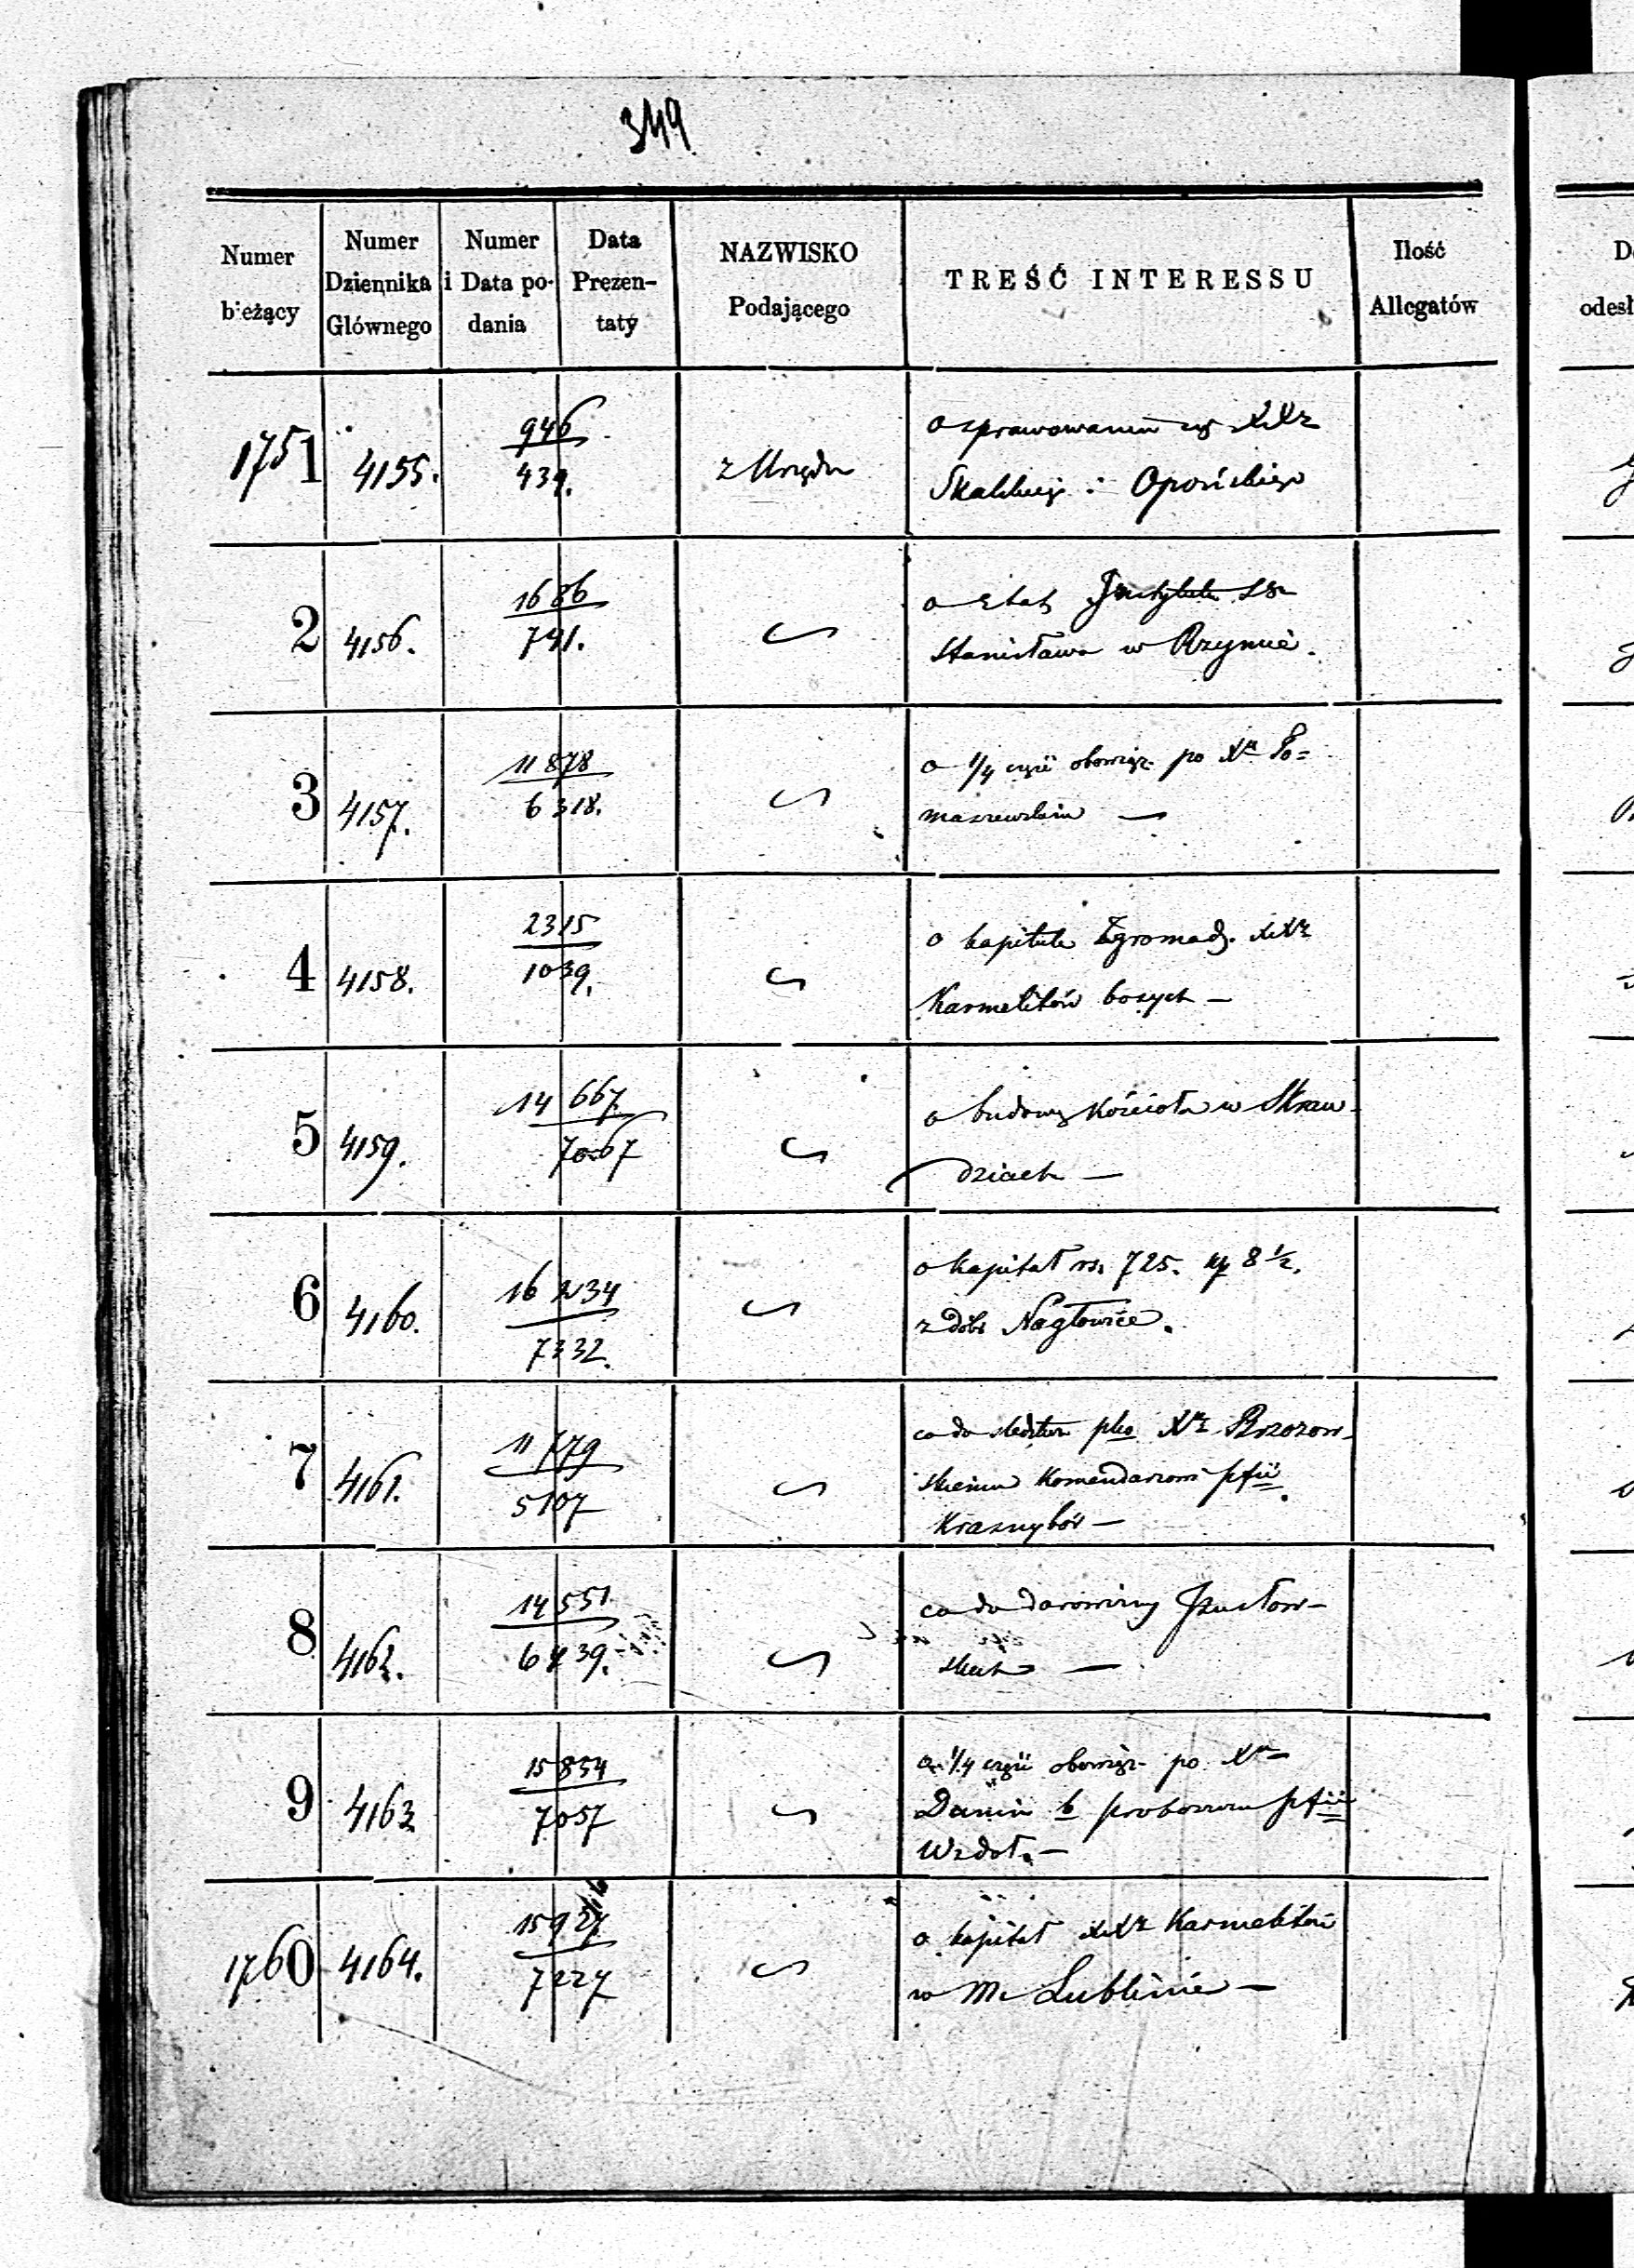 349
Numer bieżący
Numer Dziennika Głównego
Numer i Data podania
Data Prezentaty
NAZWISKO Podającego
TREŚĆ INTERESSU
Ilość Allegatów
1751 4155. 946 439. z Urzędu
o sprawowaniu się XXż
Skalskiego i Opońskiego
2 4156. 1686 741.
o Etat Instytutu Sgo
Stanisława w Rzymie.
3 4157. 11878 6318.
o 1/4 części obowiąz. po Xu To=
maszewskim —
4 4158. 2315 1039.
o kapitule Zgromadz. XXży
Karmelitów bosych —
5 4159. 14667. 7067
o budowę kościoła w Skrau-
dziach —
6 4160. 16234 7332.
o kapitał rs. 725. kp 8 1/2.
z dóbr Nagłowice.
7 4161. 11779 5107
co do śledztwa plko Xdz Brzozow-
skiemu Komendarzowi pfii
Krasnybór —
8 4162. 14551. 6439.
co do darowizny
9 4163 15854 7057
o 1/4 części obowiąz. po Xu
b proboszczu pfii
Wzdół. —
1760 4164. 15927 7227
o kapitał XXży Karmelitów
w M. Lublinie —